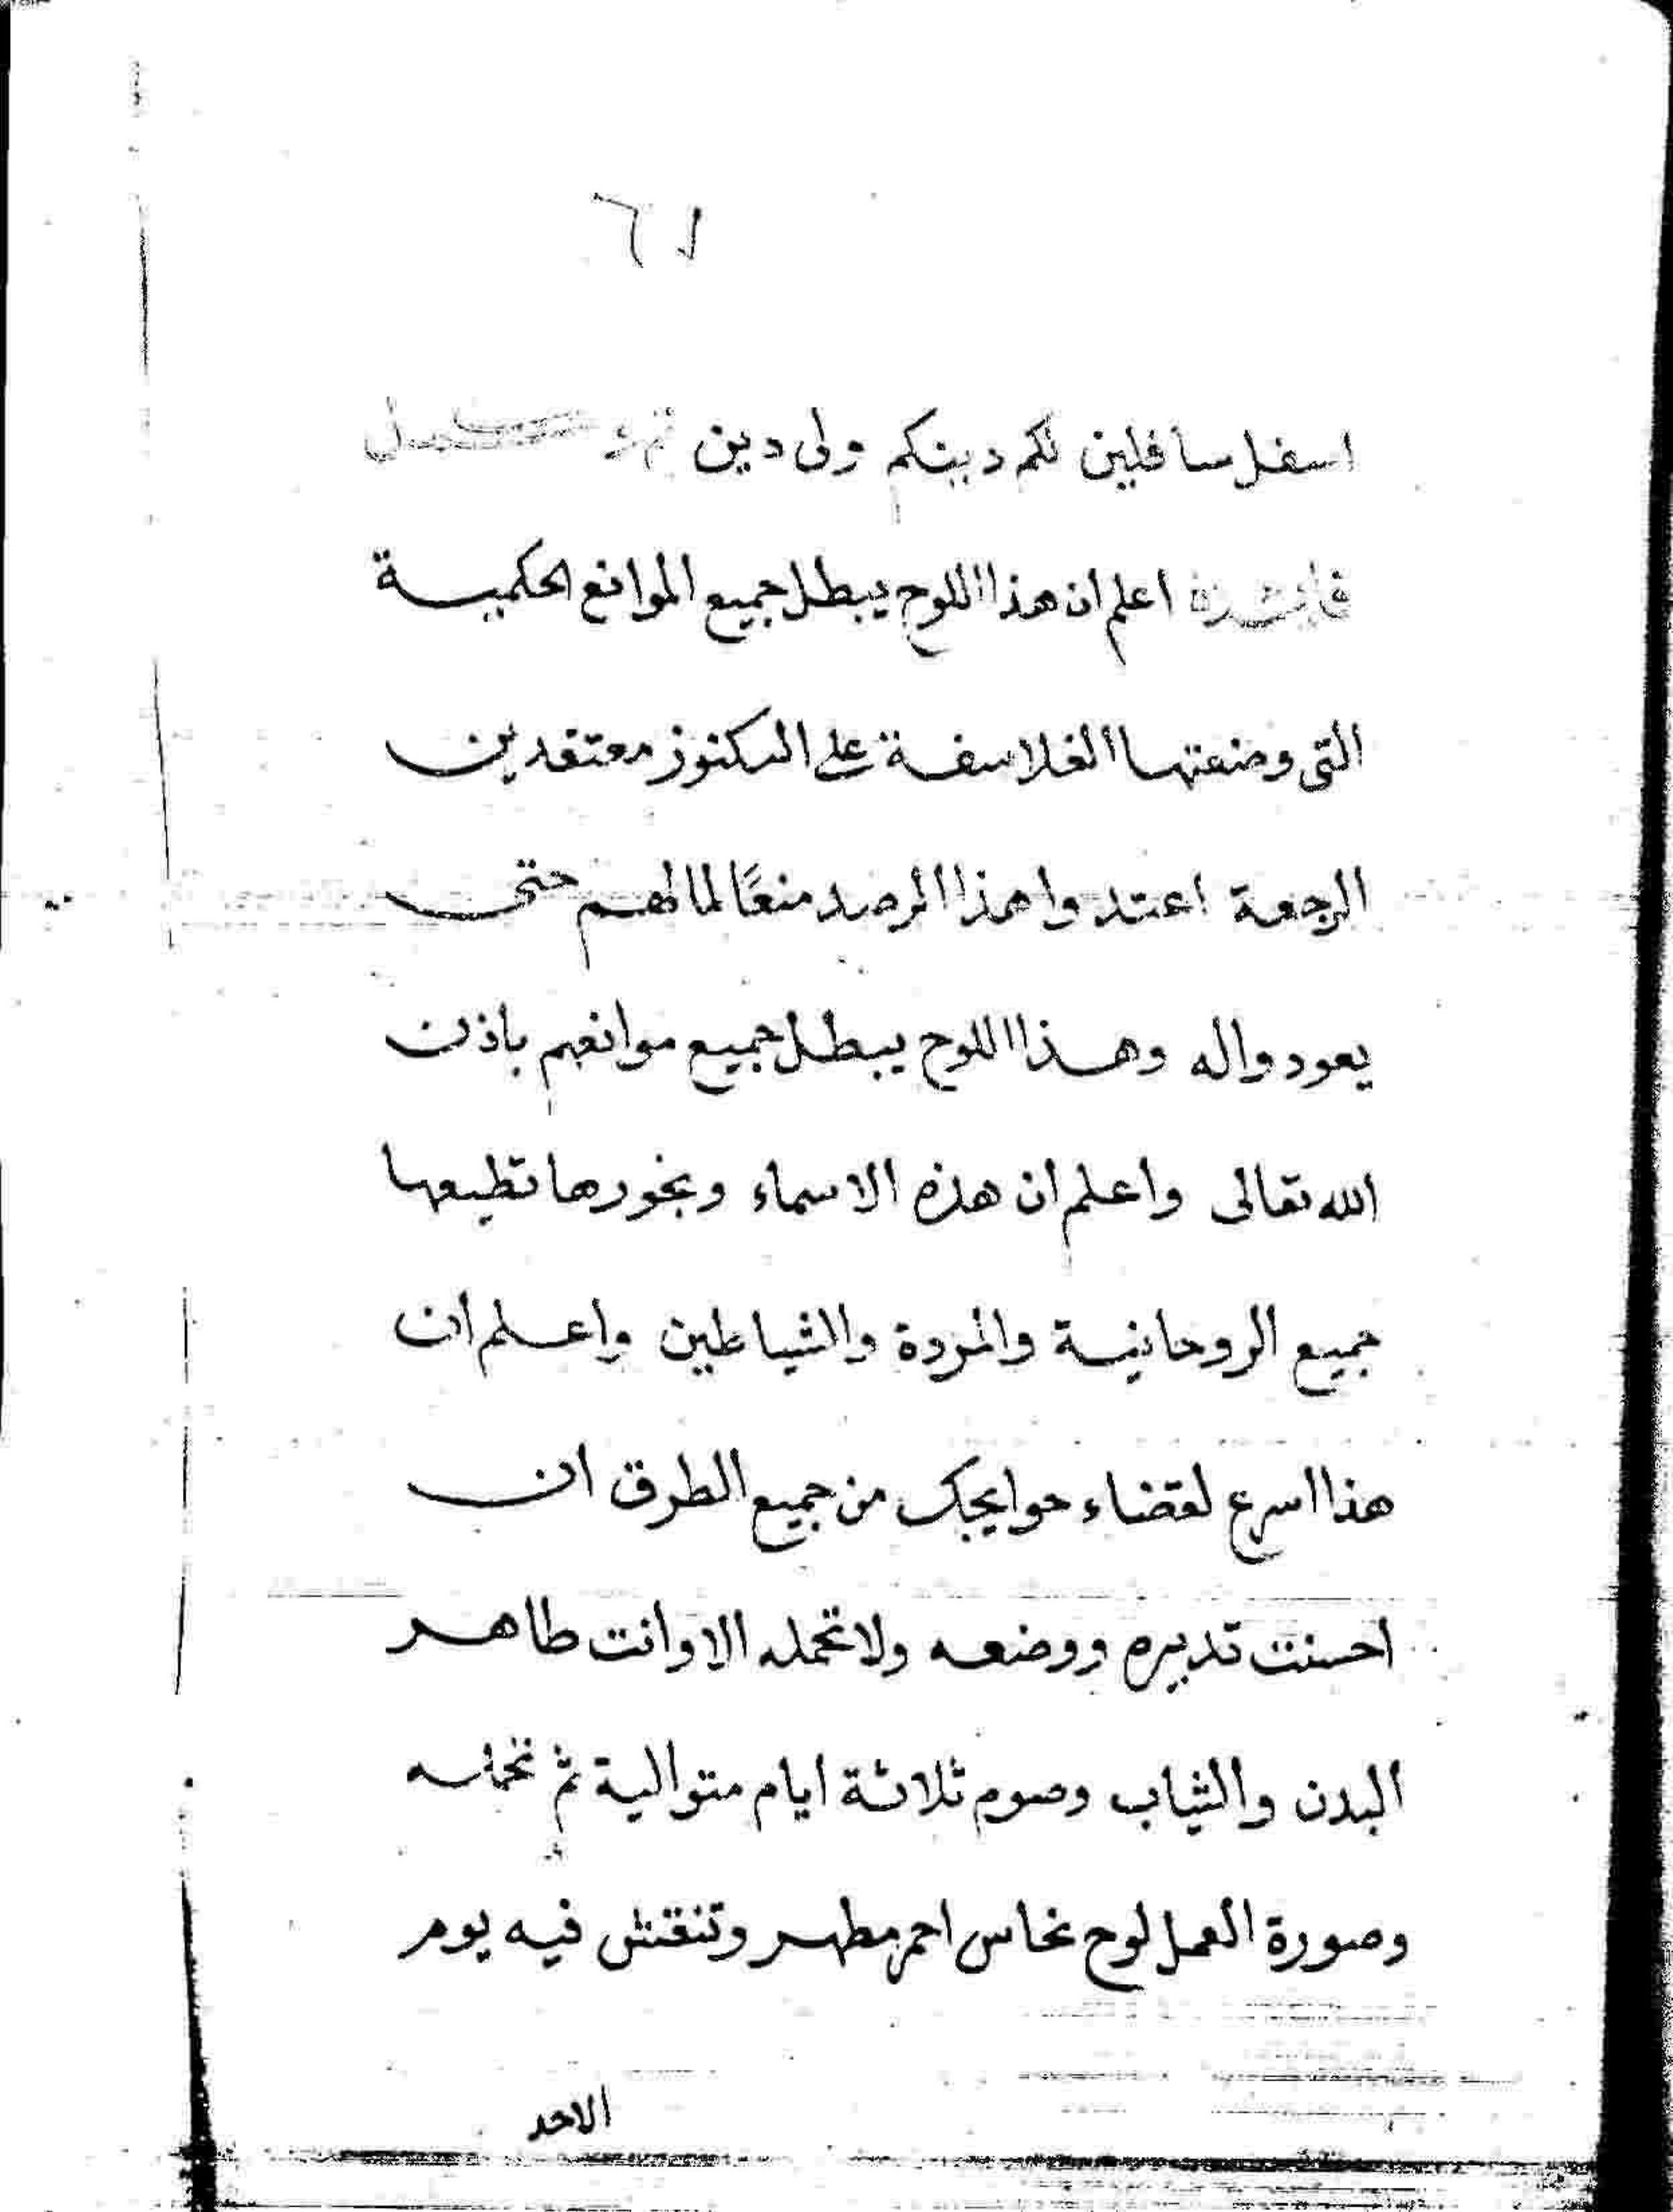 اسفل سافلين لكم دينكم ولى دين
فايدة اعلم ان هذا اللوح يبطل جميع الموانع الحكمية
التى وضعتها الفلاسفة على الكنوز معتقدين
الرجعة اعتدوا هذا الرصد منعًا لمالهم حتى
يعودوا له وهذا اللوح يبطل جميع موانعهم باذن
الله تعالى واعلم ان هذه الاسماء وبخورها تطيعها
جميع الروحانية والمردة والشياطين واعلم ان
هذا اسرع لقضاء حوايجك من جميع الطرق ان
احسنت تدبيره ووضعه ولا تحمله الا وانت طاهر
البدن والثياب وصوم ثلاثة ايام متوالية ثم تحمله
وصورة العمل لوح نحاس احمر مطهر وتنقش فيه يوم
الاحد